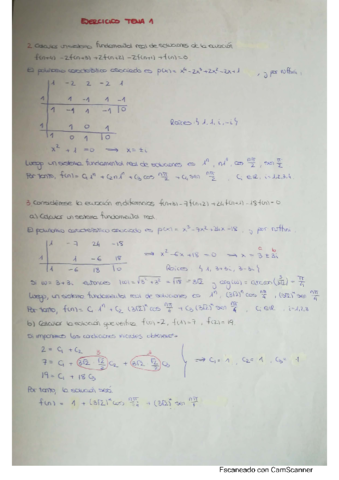 EJERCICIO TEMA 1
2. Calcular un sistema fundamental real de soluciones de la ecuación
f(n+4) - 2f(n+3) + 2f(n+2) - 2f(n+1) + f(n) = 0
El polinomio característico asociado es p(x) = x⁴ - 2x³ + 2x² - 2x + 1, y por Ruffini,
1 -2 2 -2 1
1 1 -1 1 -1
1 -1 1 -1 0
1 1 0 1
1 0 1 0
Raíces: {1, 1, i, -i}
x² + 1 = 0 ⟹ x = ±i
Luego un sistema fundamental real de soluciones es 1ⁿ, n1ⁿ, cos nπ/2, sen nπ/2
Por tanto, f(n) = C₁ 1ⁿ + C₂ n1ⁿ + C₃ cos nπ/2 + C₄ sen nπ/2, Cᵢ ∈ ℝ, i = 1,2,3,4
a) Calcular un sistema fundamental real.
El polinomio característico asociado es p(x) = x³ - 7x² + 24x - 18, y por Ruffini,
1 -7 24 -18
1 1 -6 18
1 -6 18 0
⟹ x² - 6x + 18 = 0 ⟹ x = 3 ± 3i
Raíces: {1, 3+3i, 3-3i}
Luego, un sistema fundamental real de soluciones es 1ⁿ, (3√2)ⁿ cos nπ/4, (3√2)ⁿ sen nπ/4
Por tanto, f(n) = C₁ 1ⁿ + C₂ (3√2)ⁿ cos nπ/4 + C₃ (3√2)ⁿ sen nπ/4, Cᵢ ∈ ℝ, i = 1,2,3
b) Calcular la solución que verifica f(0) = 2, f(1) = 7, f(2) = 19
Si imponemos las condiciones iniciales, obtenemos
2 = C₁ + C₂
19 = C₁ + 18 C₃
⟹ C₁ = 1, C₂ = 1, C₃ = 1
Por tanto, la solución será
f(n) = 1 + (3√2)ⁿ cos nπ/4 + (3√2)ⁿ sen nπ/4
Escaneado con CamScanner